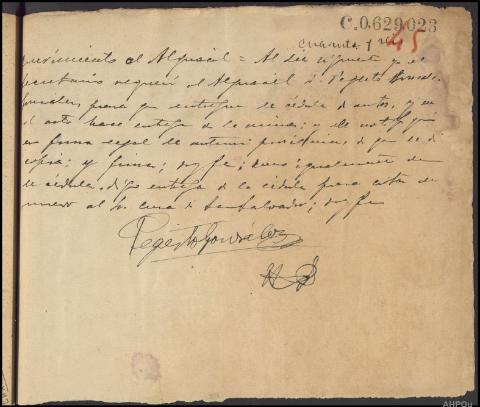 C.0,629,023
cuarenta y 45
al Alguacil = Al día siguiente yo el
Secretario requerí al Alguacil D. Pegerto Gonzalez
para que entregue la cédula de autos, y en
el acto hace entrega de la misma; y le notifiqué
en forma legal la anterior providencia, de que le di
copia; y firma; doy fe;
la cédula, digo entrega de la cédula para citar de
nuevo al Sr. Cura de San Salvador; doy fe
Pegerto Gonzalez
AHPOu